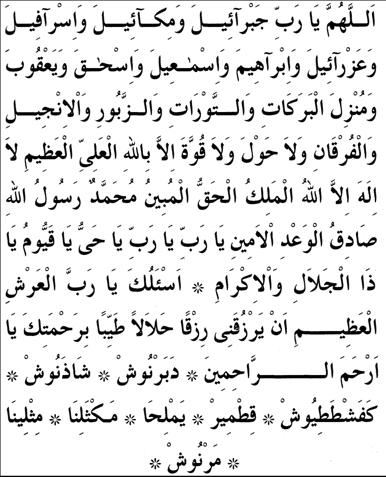 اَللَّهُمَّ يَا رَبِّ جَبْرَآئِيلَ وَمِكَآئِيلَ وَاِسْرَافِيلَ
وَعَزْرَآئِيلَ وَاِبْرَاهِيمَ وَاِسْمٰعِيلَ وَاِسْحٰقَ وَيَعْقُوبَ
وَمُنْزِلَ الْبَرَكَاتِ وَالتَّوْرَاتِ وَالزَّبُورِ وَالْاِنْجِيلِ
وَالْفُرْقَانِ وَلاَ حَوْلَ وَلاَ قُوَّةَ اِلاَّ بِاللهِ الْعَلِىِّ الْعَظِيمِ لاَ
اِلهَ اِلاَّ اللهُ الْمَلِكُ الْحَقُّ الْمُبِينُ مُحَمَّدٌ رَسُولُ اللهِ
صَادِقُ الْوَعْدِ الْاَمِينِ يَا رَبِّ يَا رَبِّ يَا حَىُّ يَا قَيُّومُ يَا
ذَا الْجَلَالِ وَالْاِكْرَامِ ❊ اَسْئَلُكَ يَا رَبَّ الْعَرْشِ
الْعَظِيمِ اَنْ يَرْزُقَنِى رِزْقًا حَلالاً طَيِّبًا بِرَحْمَتِكَ يَا
اَرْحَمَ الرَّاحِمِينَ ❊ دَبَرْنُوشْ ❊ شَاذَنُوشْ ❊
كَفَشْطَطِيُوشْ ❊ قِطْمِيرْ ❊ يَمْلِحَا ❊ مَكْثَلِنَا ❊ مِثْلِينَا
❊ مَرْنُوشْ ❊